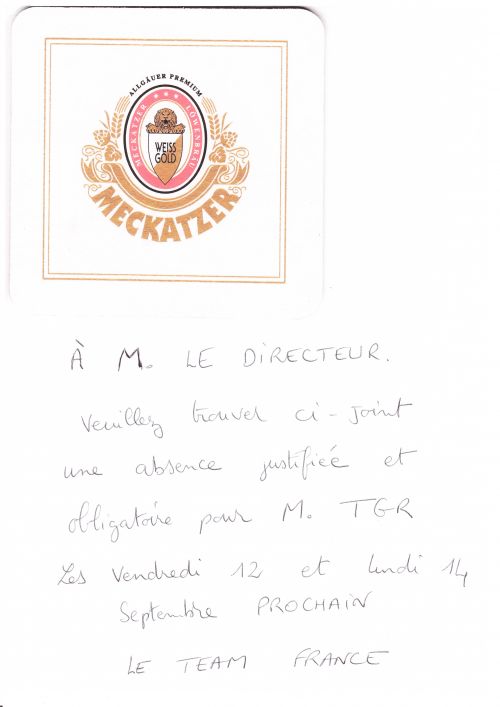 ALLGÄUER PREMIUM
MECKATZER ★★★ LÖWENBRÄU
WEISS
GOLD
MECKATZER
À M. LE DIRECTEUR.
Veuillez trouver ci-joint
une absence justifiéé et
obligatoire pour M. TGR
Les Vendredi 12 et lundi 14
Septembre PROCHAIN
LE TEAM FRANCE